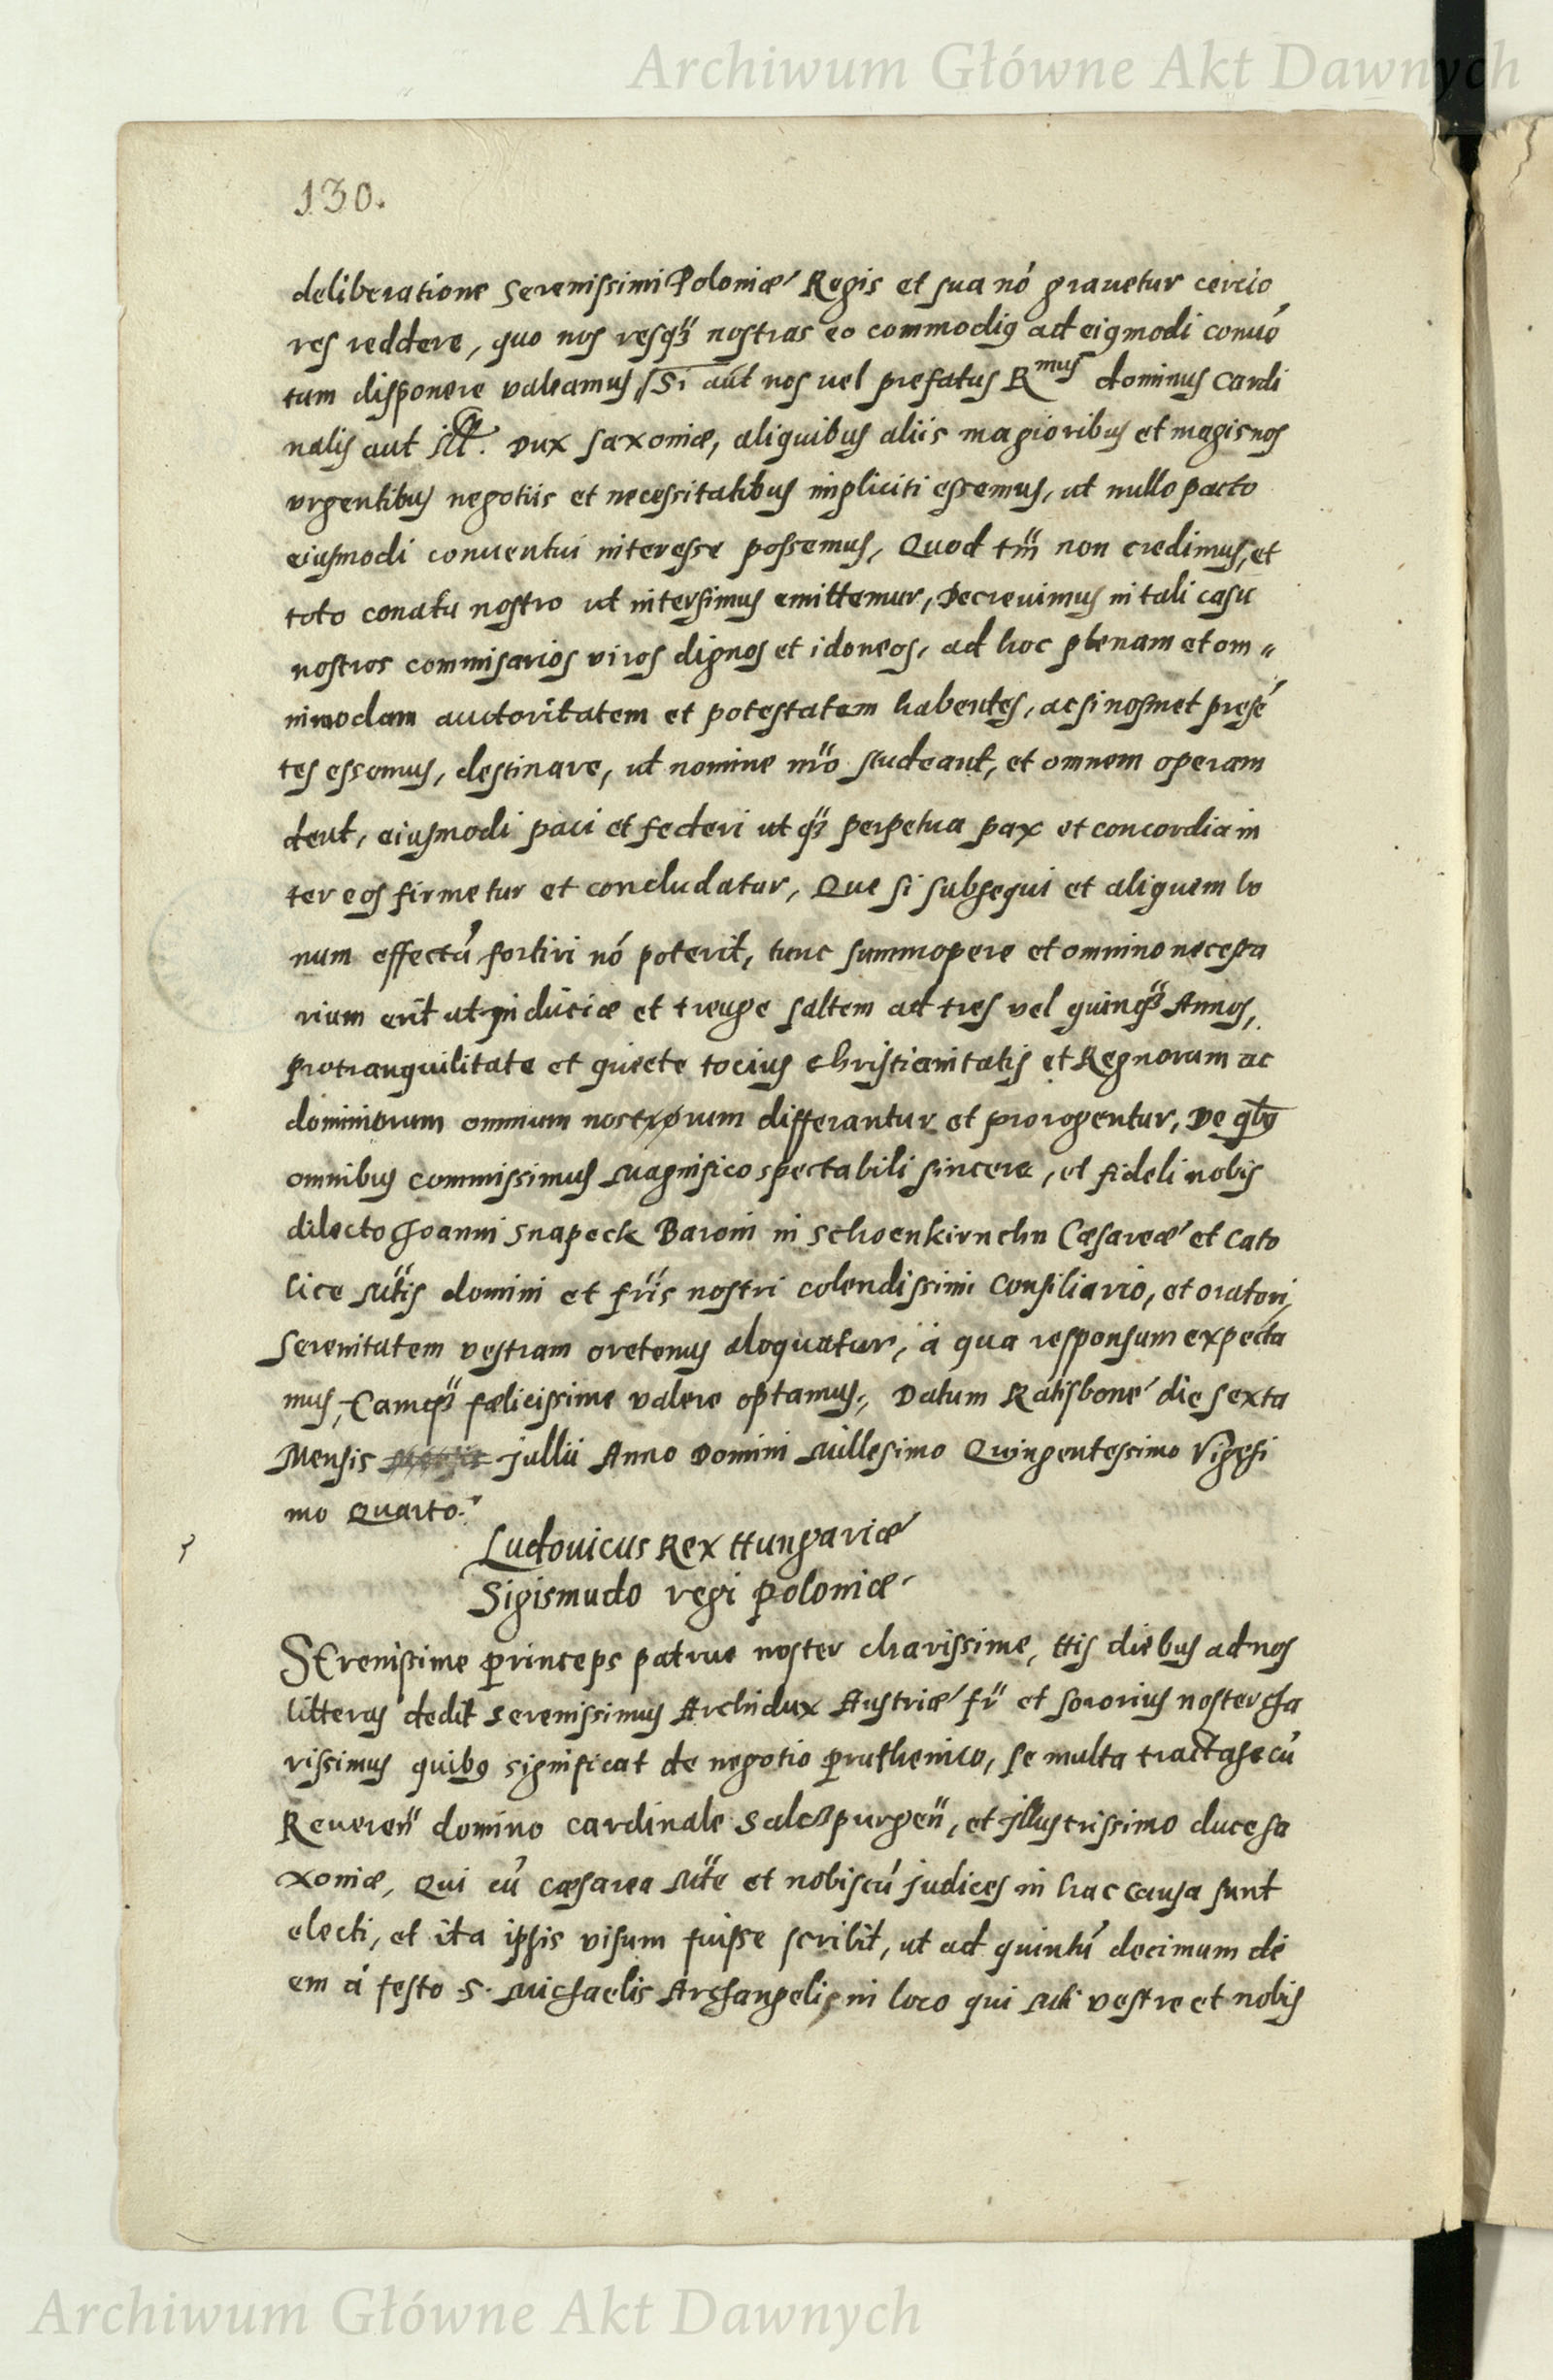 Archiwum Główne Akt Dawnych
130.
deliberatione Serenissimi Poloniæ Regis et sua nō grauetur cercio
res reddere, quo nos resq̃ nostras eo commodiꝯ ad eiꝯmodi conuē
tum disponere valeamus, Si aūt nos uel prefatus Rmus dominus Cardi
nalis aut Ill. Dux Saxoniæ, aliquibus aliis magioribus et magis nos
vrgentibus negotiis et necessitatibus impliciti essemus, ut nullo pacto
eiusmodi conuentui interesse possemus, Quod tm̃ non credimus, et
toto conatu nostro ut intersimus emittemur, Decreuimus in tali casu
nostros commisarios viros dignos et idoneos, ad hoc plenam et om„
nimodam auctoritatem et potestatem habentes, ac si nosmet presē
tes essemus, destinare, ut nomine nr̃o studeant, et omnem operam
dent, eiusmodi paci et federi ut q̃ perpetua pax et concordia in
ter eos firmetur et concludatur, Que si subsequi et aliquem bo
num effectū sortiri nō poterit, tunc summopere et omnino necessa
rium erit ut induciæ et treuge saltem ad tres vel quinq̃ Annos,
pro tranquilitate et quiete tocius Christianitatis et Regnorum ac
dominiorum omnium nostrorum differantur et prorogentur, De qbꝯ
omnibus commissimus Magnifico spectabili sincere, et fideli nobis
dilecto Joanni Snapeck Baroni in Schoenkirnchn Cæsareæ et Cato
lice Mtis domini et fr̃is nostri colendissimi Consiliario, et oratori,
Serenitatem vestram oretenus aloquatur, à qua responsum expecta
mus, Eamq̃ fælicissime valere optamus., Datum Ratisbone die sexta
Mensis Jullii Anno Domini Millesimo Quingentessimo Vigesi
mo Quarto.
Ludouicus Rex Hungariæ
Sigismudo regi Poloniæ
SErenissime Princeps patrue noster charissime, His diebus ad nos
litteras dedit Serenissimus Archidux Austriæ fr̃ et sororius noster cha
rissimus quibꝯ significat de negotio Pruthenico, se multa tractasse cū
Reueren̄ domino cardinale Salczpurgen̄, et Illustrissimo duce Sa
xoniæ, Qui cū cæsarea Mte et nobiscū judices in hac causa sunt
electi, et ita ipsis visum fuisse scribit, ut ad quintū decimum di
em à festo S. Michaelis Archangeli, in loco qui Mti vestre et nobis
Archiwum Główne Akt Dawnych